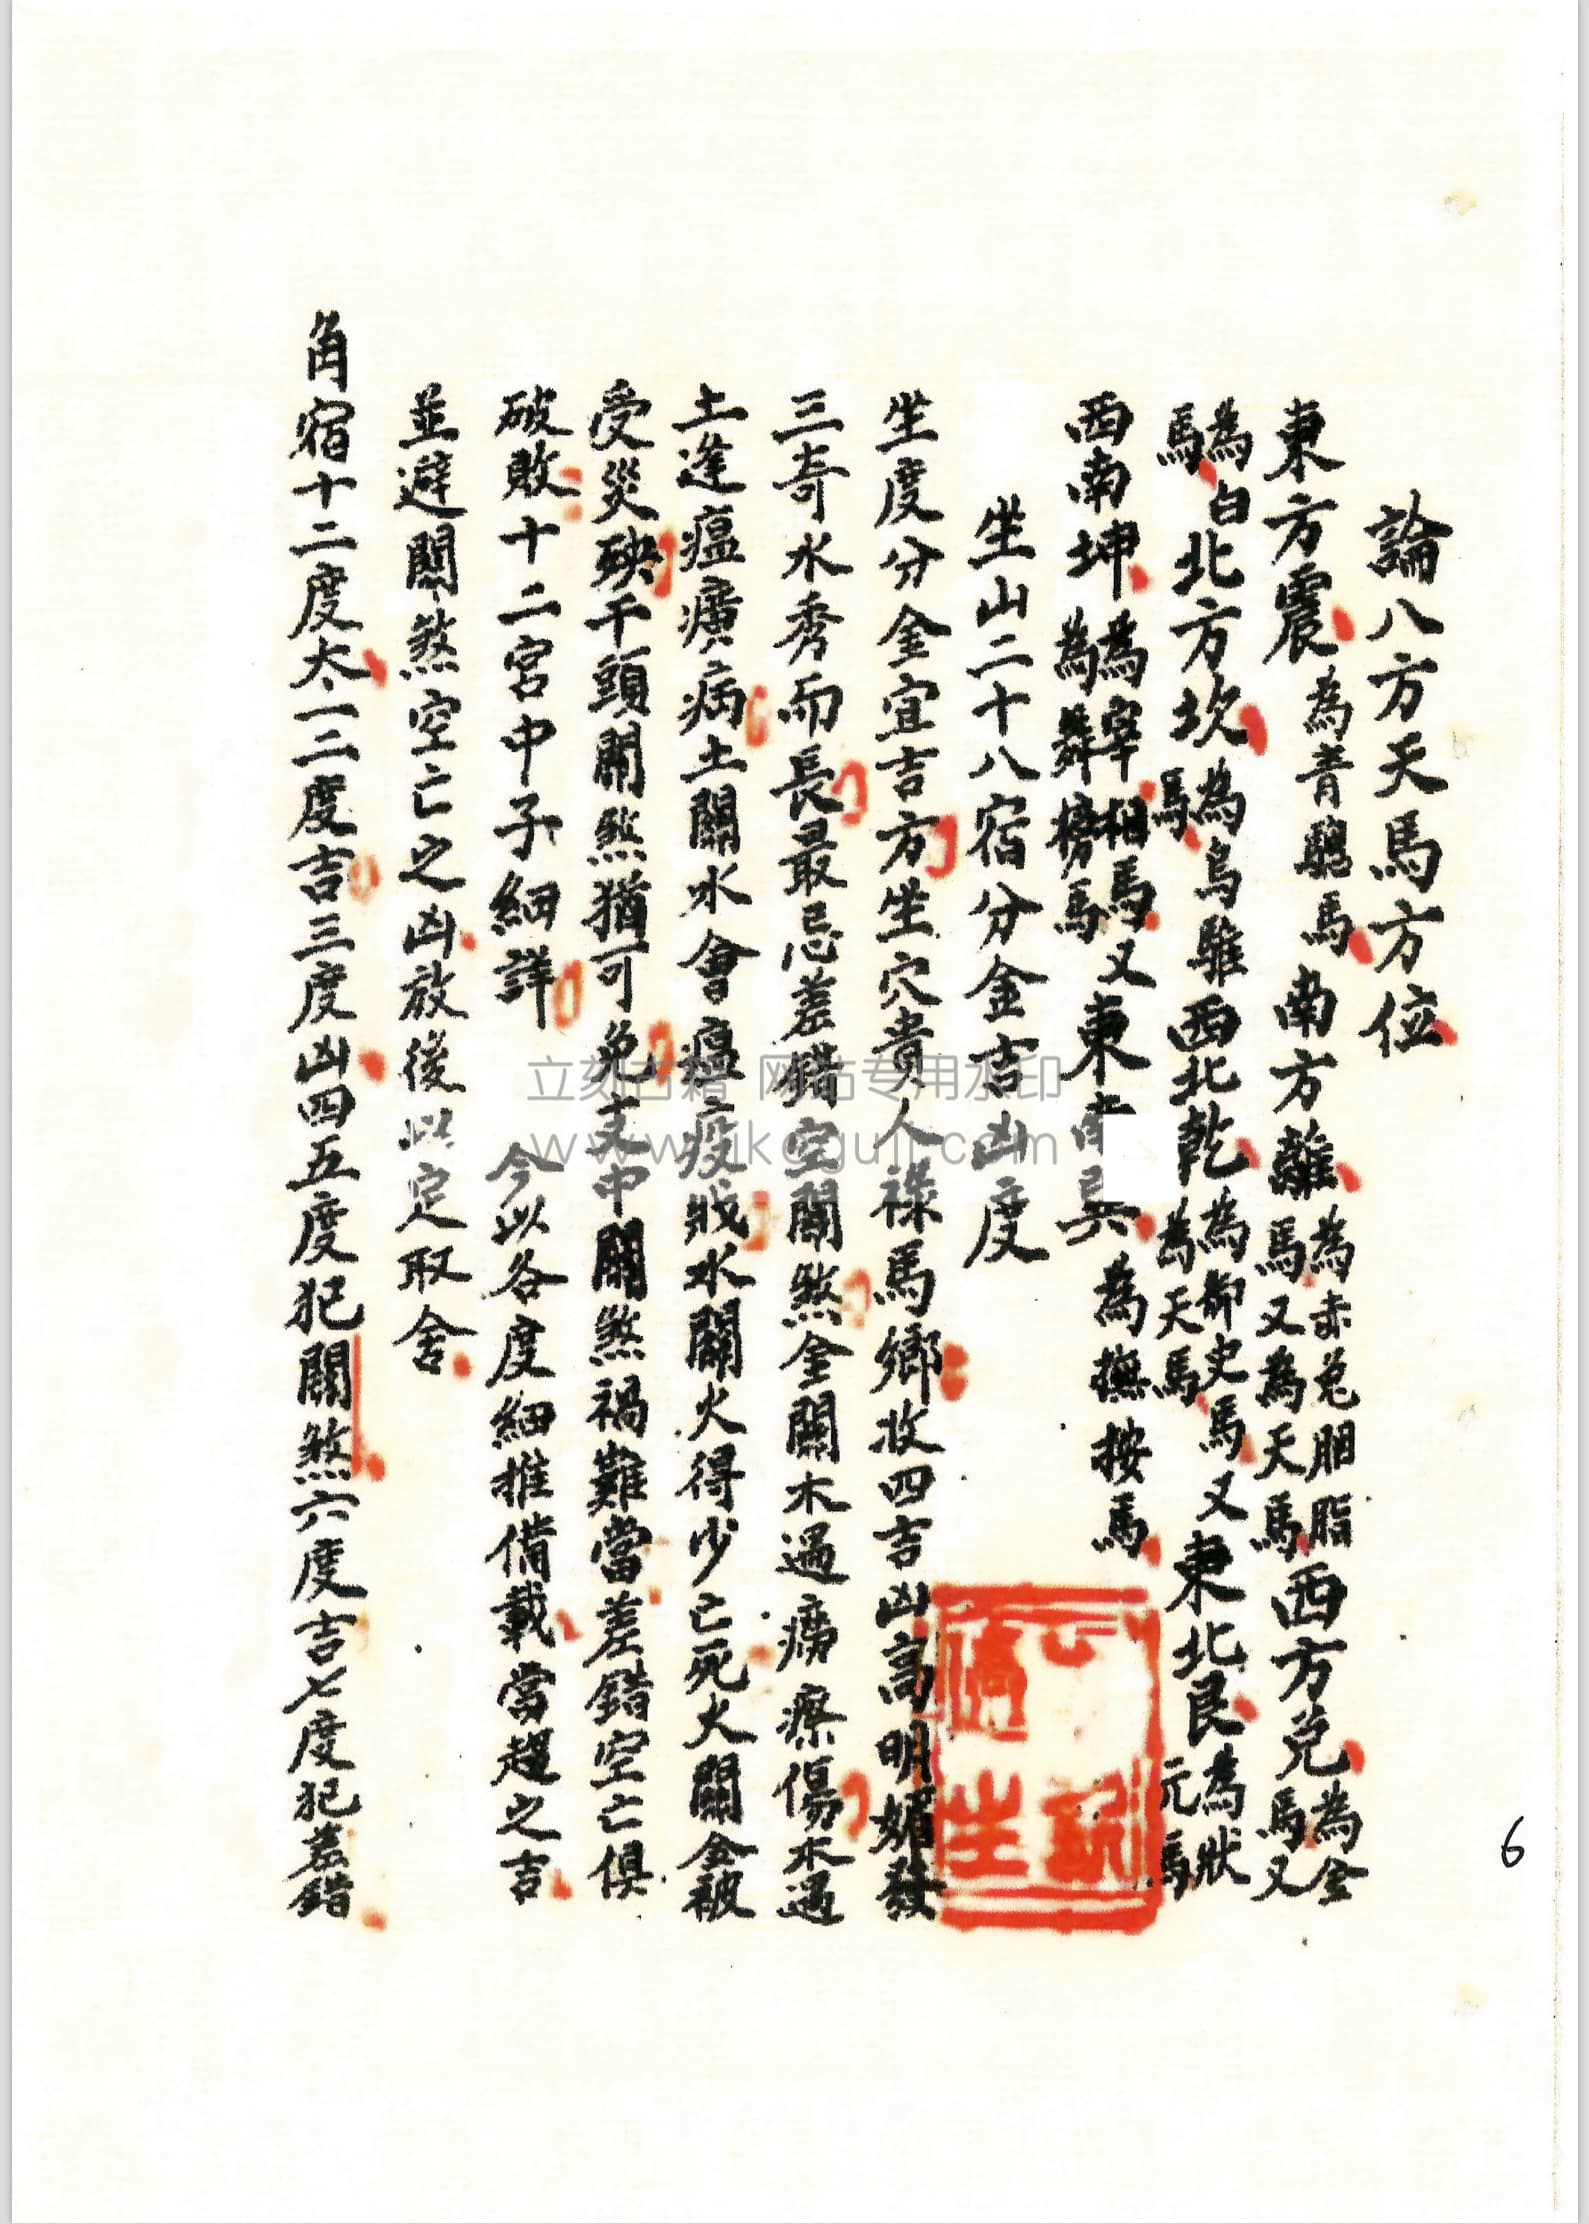 論八方天馬方位
東方震為青驄馬南方離為赤兔胭脂馬又為天馬西方兌為金馬又
為白驕馬北方坎為烏騅馬西北乾為御史馬又為天馬東北艮為狀元馬
西南坤為宰相馬又為舞榜馬東南巽為撫按馬
坐山二十八宿分金吉凶度
坐度分金宜吉方坐穴貴人祿馬鄉收四吉山高明媚發
三奇水秀而長最忌差錯空關煞金關木過癆瘵傷木過
土逢瘟㾮病土關水會瘟疫戕水關火得少亡死火關金被
受災殃干頭關煞猶可免支中關煞禍難當差錯空亡俱
破敗十二宮中子細詳 今以各度細推備載當趨之吉
並避關煞空亡之凶放後以定取舍
角宿十二度太一二度吉三度凶四五度犯關煞六度吉七度犯差錯
6
立刻古籍 网站专用水印